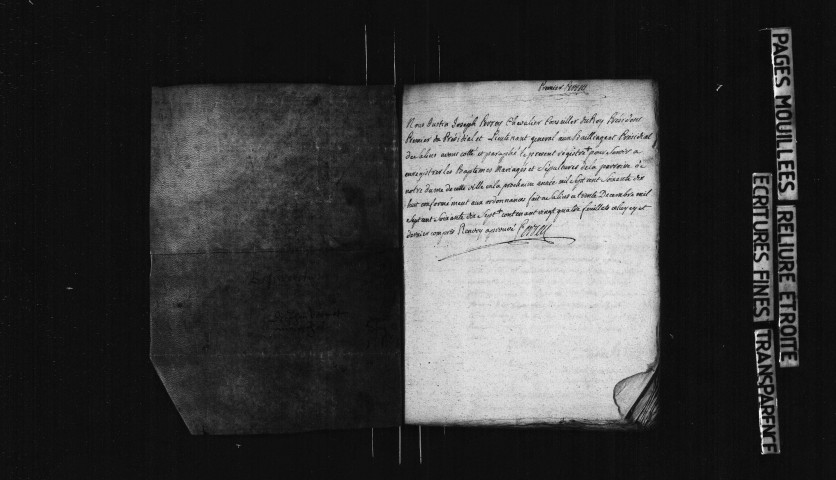 Premier Perrey
Nous Justin Joseph Perrey Chevalier Conseiller du Roy Président
Premier du Présidial et Lieutenant general au Bailliage et Présidial
de Salins avons cotté et paraphé le present régistre pour servir a
enregistrer les Baptemes Mariages et Sepultures de la paroisse de
notre dame de cette ville en la prochaine année mil Sept cent Soixante dix
huit conformément aux ordonnances fait a Salins ce trente Decembre mil
Sept cent Soixante dix Sept contenant vingt quatre feuillets celuy cy et
dernier compris Renvoy approuvé Perrey
PAGES MOUILLEES RELIURE ETROITE
ECRITURES FINES TRANSPARENCE